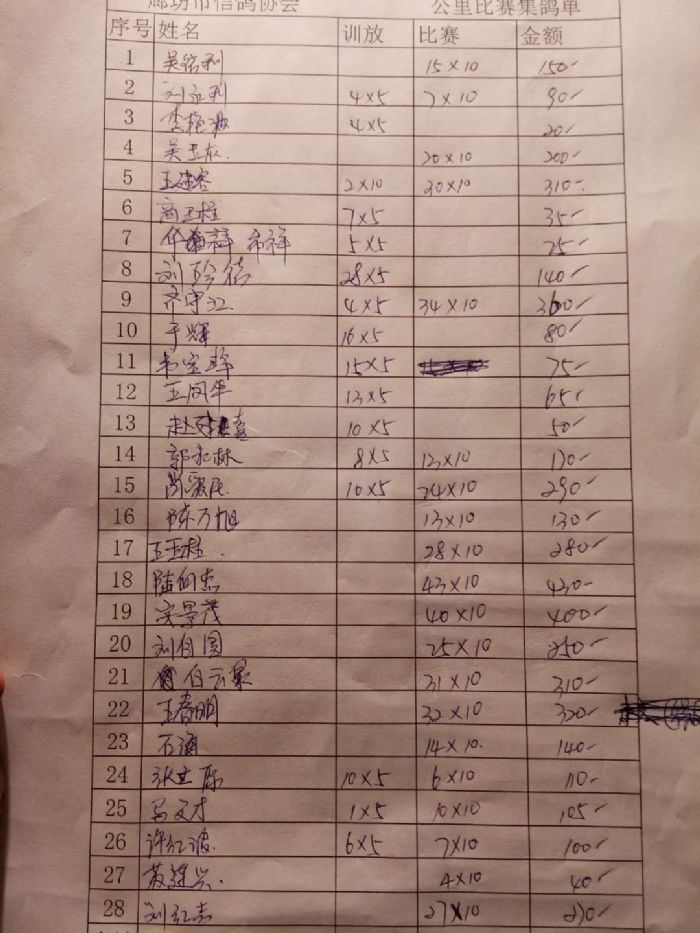 廊坊市信鸽协会 公里比赛集鸽单
序号 姓名 训放 比赛 金额
1 吴铭利 15×10 150-
2 刘永利 4×5 7×10 90-
3 李艳波 4×5 20-
4 吴立友. 20×10 200-
5 王建容 2×10 30×10 310-
6 商玉柱 7×5 35-
7 希祥 5×5 25-
8 刘珍 28×5 140-
9 齐守江 4×5 34×10 360-
10 于辉 16×5 80-
11 15×5 75-
12 王同华 13×5 65-
13 赵 10×5 50-
14 郭永林 8×5 13×10 170-
15 10×5 24×10 290-
16 陈万旭 13×10 130-
17 王玉柱. 28×10 280-
18 陆向杰 43×10 430-
19 安景茂 40×10 400-
20 刘自国 25×10 250-
21 白云 31×10 310-
22 王春明 32×10 320-
23 石涌 14×10. 140-
24 张立 10×5 6×10 110-
25 马文才 1×5 10×10 105-
26 许红波 6×5 7×10 100-
27 苏建兴. 4×10 40-
28 刘红志 27×10 270-